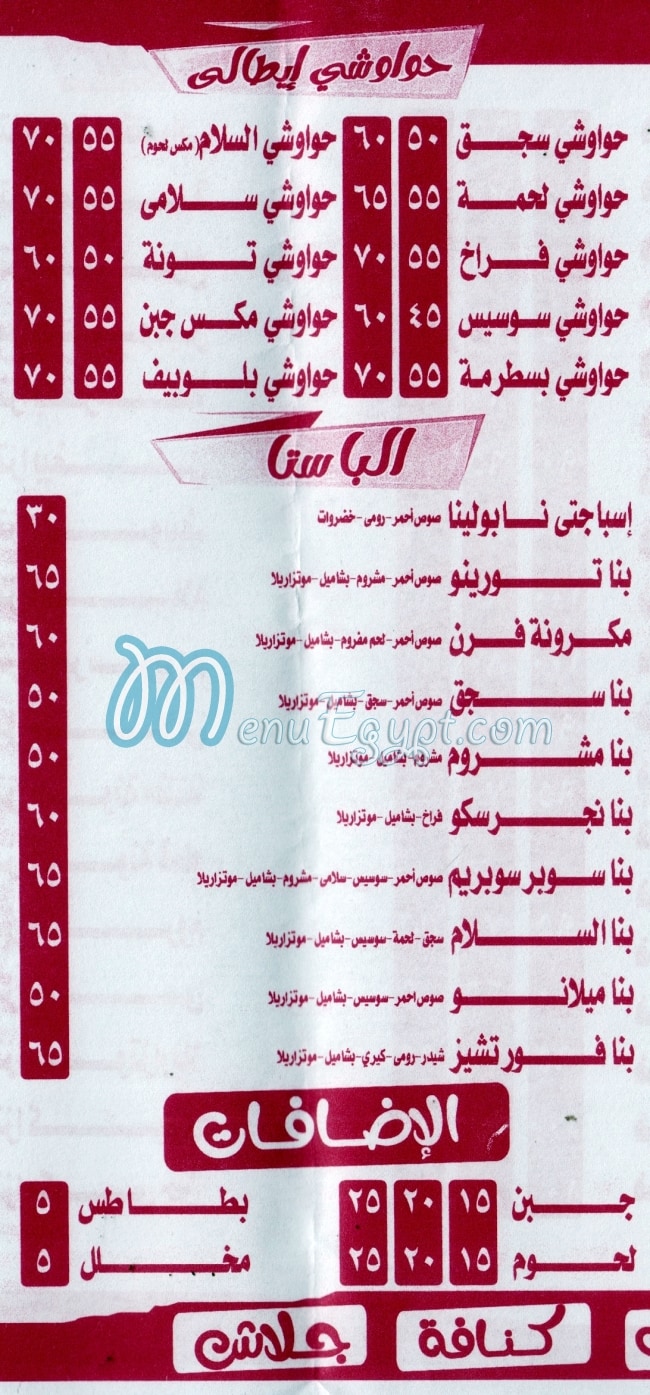 حواوشي إيطالى
حواوشي سجق ٥٠ ٦٠ حواوشي السلام (مكس لحوم) ٥٥ ٧٠
حواوشي لحمة ٥٥ ٦٥ حواوشي سلامى ٥٥ ٧٠
حواوشي فراخ ٥٥ ٧٠ حواوشي تونة ٥٠ ٦٠
حواوشي سوسيس ٤٥ ٦٠ حواوشي مكس جبن ٥٥ ٧٠
حواوشي بسطرمة ٥٥ ٧٠ حواوشي بلوبيف ٥٥ ٧٠
الباستا
إسباجتى نابولينا صوص أحمر-رومى-خضروات ٣٠
بنا تورينو صوص أحمر-مشروم-بشاميل-موتزاريلا ٦٥
مكرونة فرن صوص أحمر-لحم مفروم-بشاميل-موتزاريلا ٦٠
بنا سجق صوص أحمر-سجق-بشاميل-موتزاريلا ٥٠
MenuEgypt.com
بنا مشروم مشروم-بشاميل-موتزاريلا ٥٠
بنا نجرسكو فراخ-بشاميل-موتزاريلا ٦٠
بنا سوبر سوبريم صوص أحمر-سوسيس-سلامى-مشروم-بشاميل-موتزاريلا ٦٥
بنا السلام سجق-لحمة-سوسيس-بشاميل-موتزاريلا ٦٥
بنا ميلانو صوص احمر-سوسيس-بشاميل-موتزاريلا ٥٠
بنا فور تشيز شيدر-رومى-كيري-بشاميل-موتزاريلا ٦٥
الإضافات
جبن ١٥ ٢٠ ٢٥ بطاطس ٥
لحوم ١٥ ٢٠ ٢٥ مخلل ٥
كنافة جلاش